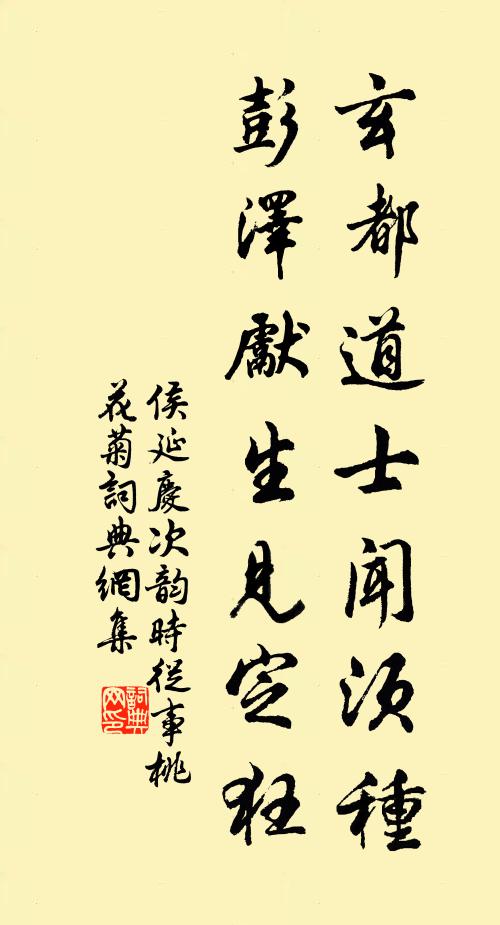 玄都道士闻须種
彭澤獻生見定狂
侯延慶次韵時從事桃
花菊詞典網集
詞典
网印